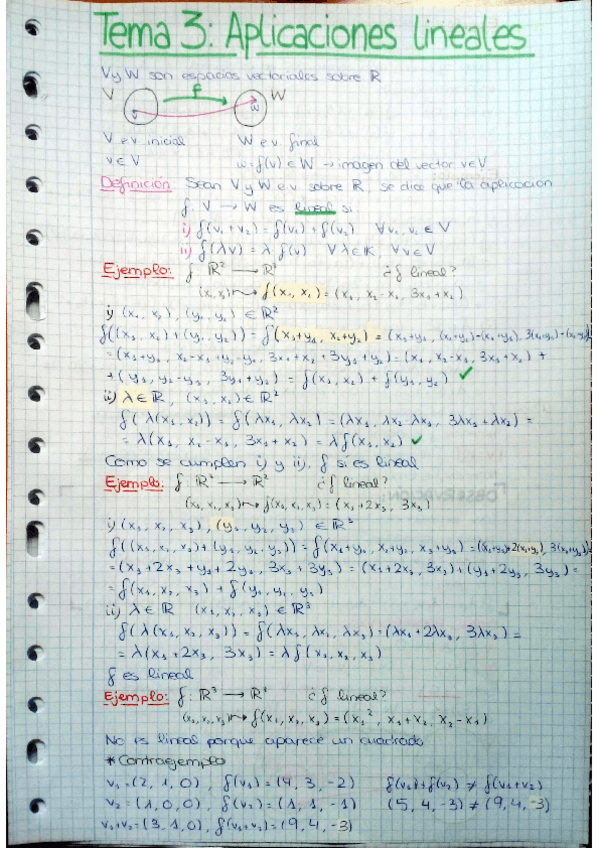 Tema 3: Aplicaciones lineales
V y W son espacios vectoriales sobre ℝ
V f W
v w
V e.v inicial W e.v final
v ∈ V w = f(v) ∈ W → imagen del vector v ∈ V
Definición Sean V y W e.v sobre ℝ, se dice que la aplicación
f: V → W es lineal si
i) f(v₁ + v₂) = f(v₁) + f(v₂) ∀ v₁, v₂ ∈ V
ii) f(λv) = λ f(v) ∀ λ ∈ K, ∀ v ∈ V
Ejemplo: f ℝ² → ℝ³ ¿f lineal?
(x₁, x₂) → f(x₁, x₂) = (x₁, x₂ - x₁, 3x₁ + x₂)
i) (x₁, x₂), (y₁, y₂) ∈ ℝ²
f((x₁, x₂) + (y₁, y₂)) = f(x₁+y₁, x₂+y₂) = (x₁+y₁, (x₂+y₂)-(x₁+y₁), 3(x₁+y₁)+(x₂+y₂))
= (x₁+y₁, x₂-x₁+y₂-y₁, 3x₁+x₂+3y₁+y₂) = (x₁, x₂-x₁, 3x₁+x₂) +
+ (y₁, y₂-y₁, 3y₁+y₂) = f(x₁, x₂) + f(y₁, y₂) ✓
ii) λ ∈ ℝ, (x₁, x₂) ∈ ℝ²
f(λ(x₁, x₂)) = f(λx₁, λx₂) = (λx₁, λx₂-λx₁, 3λx₁+λx₂) =
= λ(x₁, x₂-x₁, 3x₁+x₂) = λ f(x₁, x₂) ✓
Como se cumplen i) y ii), f sí es lineal
Ejemplo: f ℝ³ → ℝ² ¿f lineal?
(x₁, x₂, x₃) → f(x₁, x₂, x₃) = (x₁ + 2x₃, 3x₃)
i) (x₁, x₂, x₃), (y₁, y₂, y₃) ∈ ℝ³
f((x₁, x₂, x₃) + (y₁, y₂, y₃)) = f(x₁+y₁, x₂+y₂, x₃+y₃) = (x₁+y₁+2(x₃+y₃), 3(x₃+y₃))
= (x₁+2x₃+y₁+2y₃, 3x₃+3y₃) = (x₁+2x₃, 3x₃) + (y₁+2y₃, 3y₃) =
= f(x₁, x₂, x₃) + f(y₁, y₂, y₃)
ii) λ ∈ ℝ (x₁, x₂, x₃) ∈ ℝ³
f(λ(x₁, x₂, x₃)) = f(λx₁, λx₂, λx₃) = (λx₁+2λx₃, 3λx₃) =
= λ(x₁+2x₃, 3x₃) = λ f(x₁, x₂, x₃)
f es lineal
Ejemplo: f: ℝ³ → ℝ³ ¿f lineal?
(x₁, x₂, x₃) → f(x₁, x₂, x₃) = (x₁², x₁+x₂, x₃-x₁)
No es lineal porque aparece un cuadrado
*Contraejemplo
v₁ = (2, 1, 0), f(v₁) = (4, 3, -2) f(v₁)+f(v₂) ≠ f(v₁+v₂)
v₂ = (1, 0, 0), f(v₂) = (1, 1, -1) (5, 4, -3) ≠ (9, 4, -3)
v₁+v₂ = (3, 1, 0), f(v₁+v₂) = (9, 4, -3)